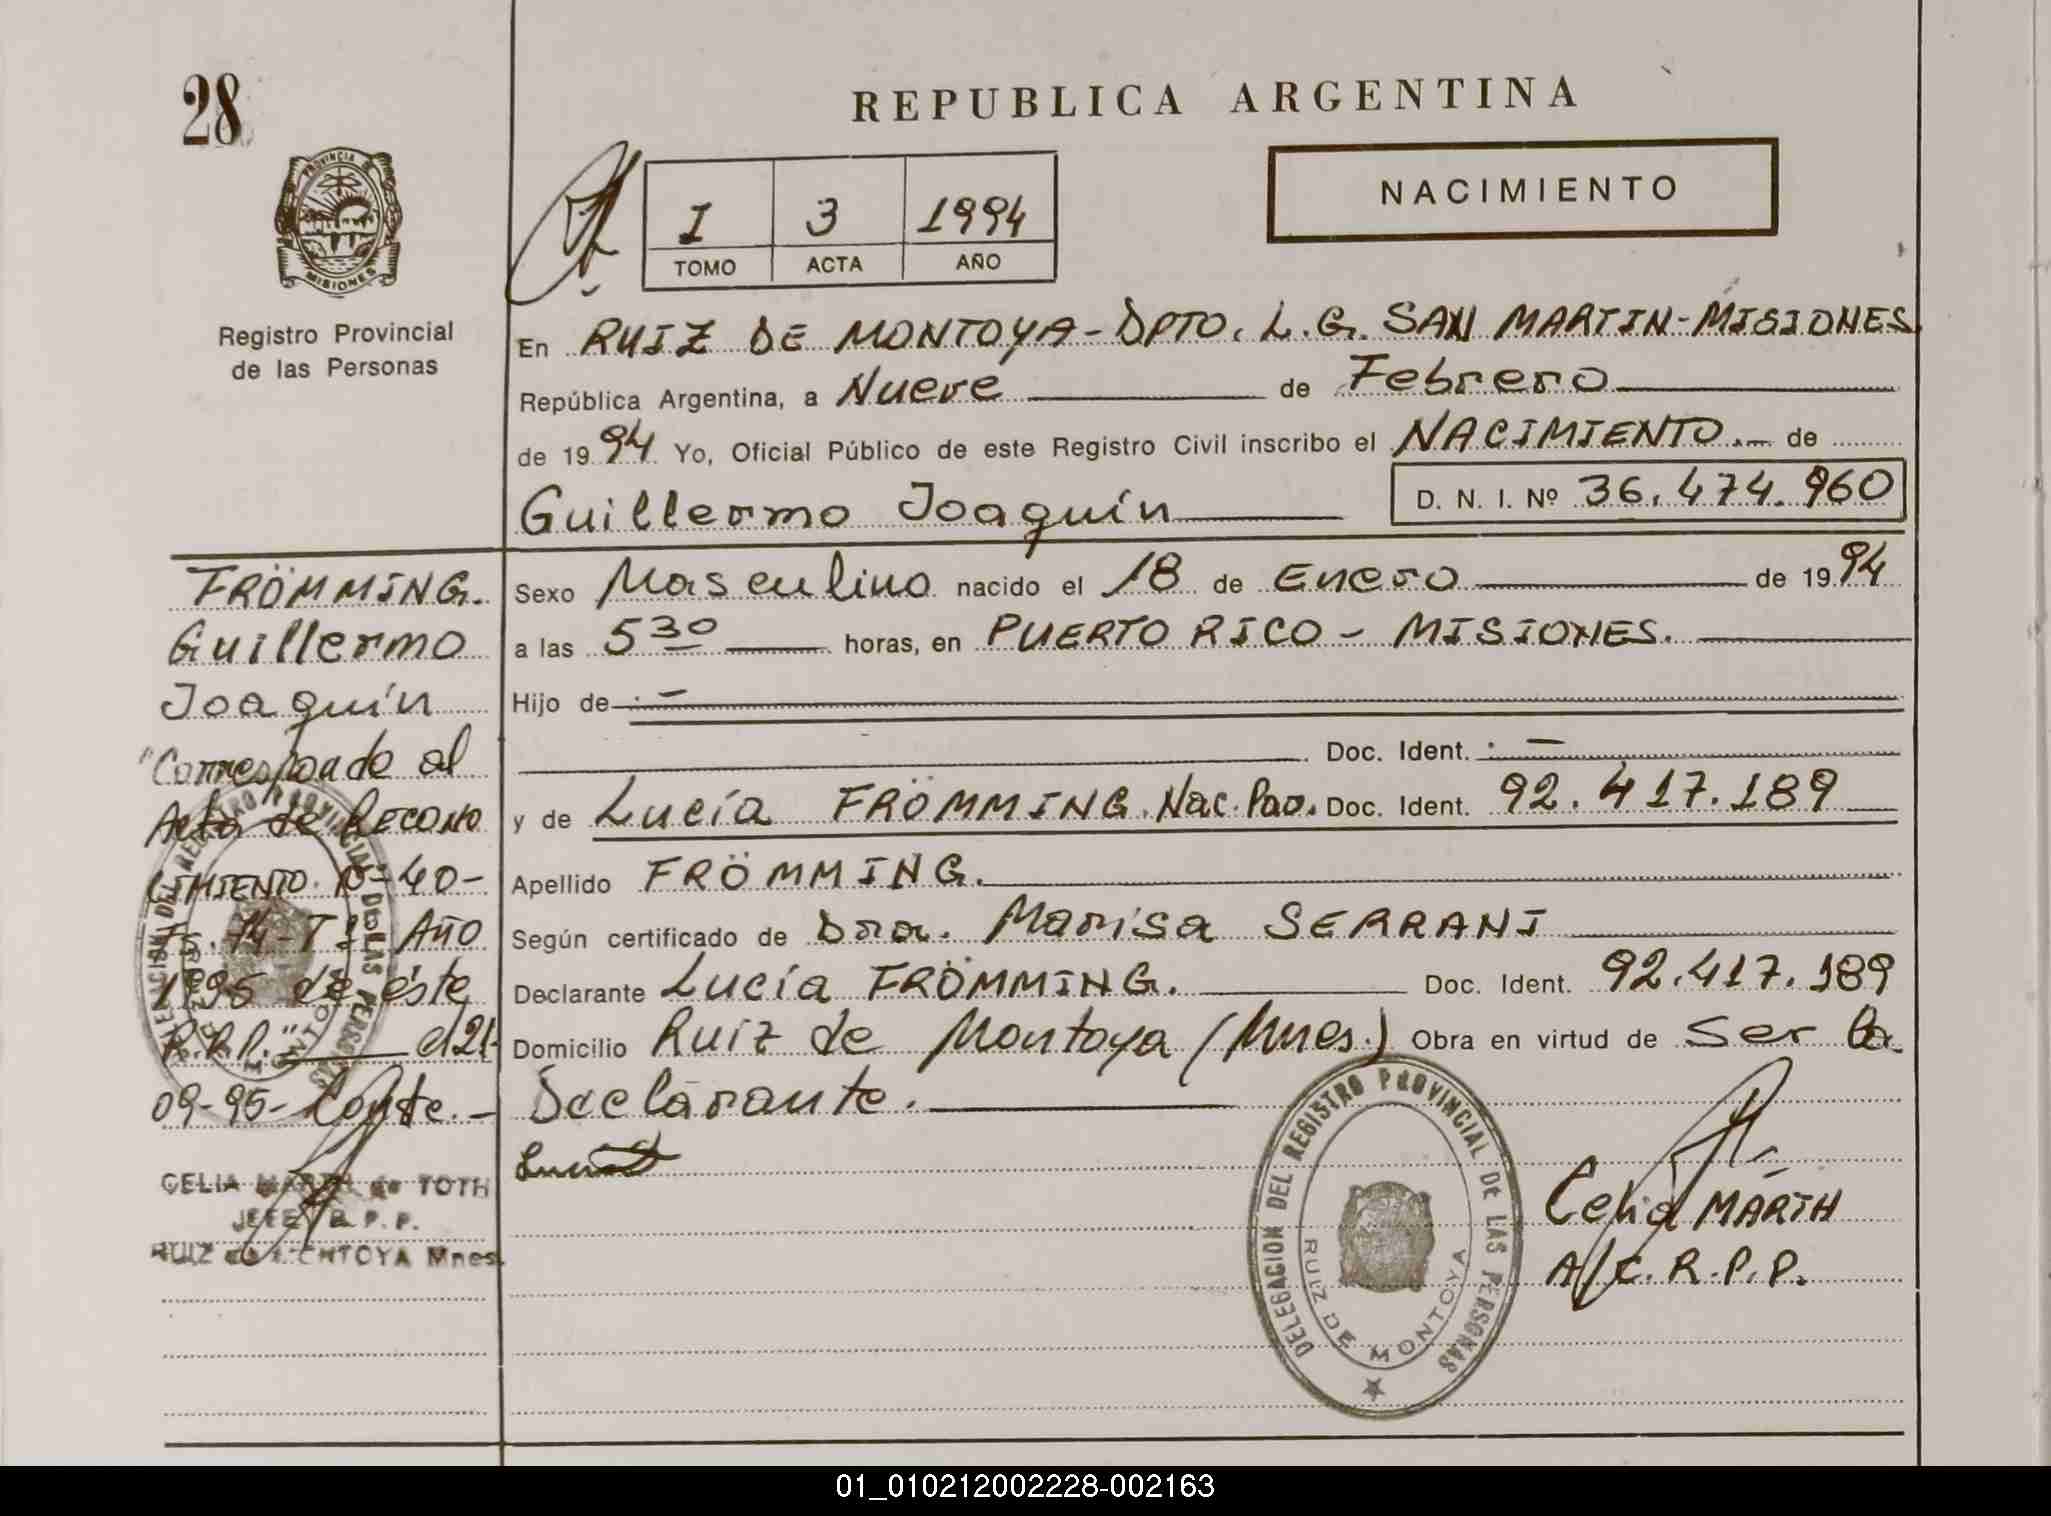 28
PROVINCIA DE
MISIONES
Registro Provincial
de las Personas
REPUBLICA ARGENTINA
I 3 1994
TOMO ACTA AÑO
NACIMIENTO
En RUIZ DE MONTOYA - DPTO. L. G. SAN MARTIN - MISIONES
República Argentina, a Nueve de Febrero
de 1994 Yo, Oficial Público de este Registro Civil inscribo el NACIMIENTO.- de
Guillermo Joaquín D. N. I. Nº 36.474.960
Sexo Masculino nacido el 18 de Enero de 1994
a las 5 30 horas, en PUERTO RICO - MISIONES.
Hijo de .-
Doc. Ident. .-
y de Lucía FRÖMMING. Nac. Par. Doc. Ident. 92.417.189
Apellido FRÖMMING.
Según certificado de Dra. Marisa SERRANI
Declarante Lucía FRÖMMING. Doc. Ident. 92.417.189
Domicilio Ruiz de Montoya (Mnes.) Obra en virtud de Ser la
Declarante.
FRÖMMING.
Guillermo
Joaquín
"Corresponde al
Acta de RECONO
CIMIENTO. Nº 40-
Fº. 74 - Tº I Año
1995 de éste
R.P.P." d21-
09-95- Conste.-
CELIA MARTH de TOTH
JEFE R. P. P.
RUIZ de MONTOYA Mnes.
DELEGACION DEL REGISTRO PROVINCIAL DE LAS PERSONAS
RUIZ DE MONTOYA
DELEGACION DEL REGISTRO PROVINCIAL DE LAS PERSONAS
RUIZ DE MONTOYA
Celia MARTH
A/C. R.P.P.
01_010212002228-002163